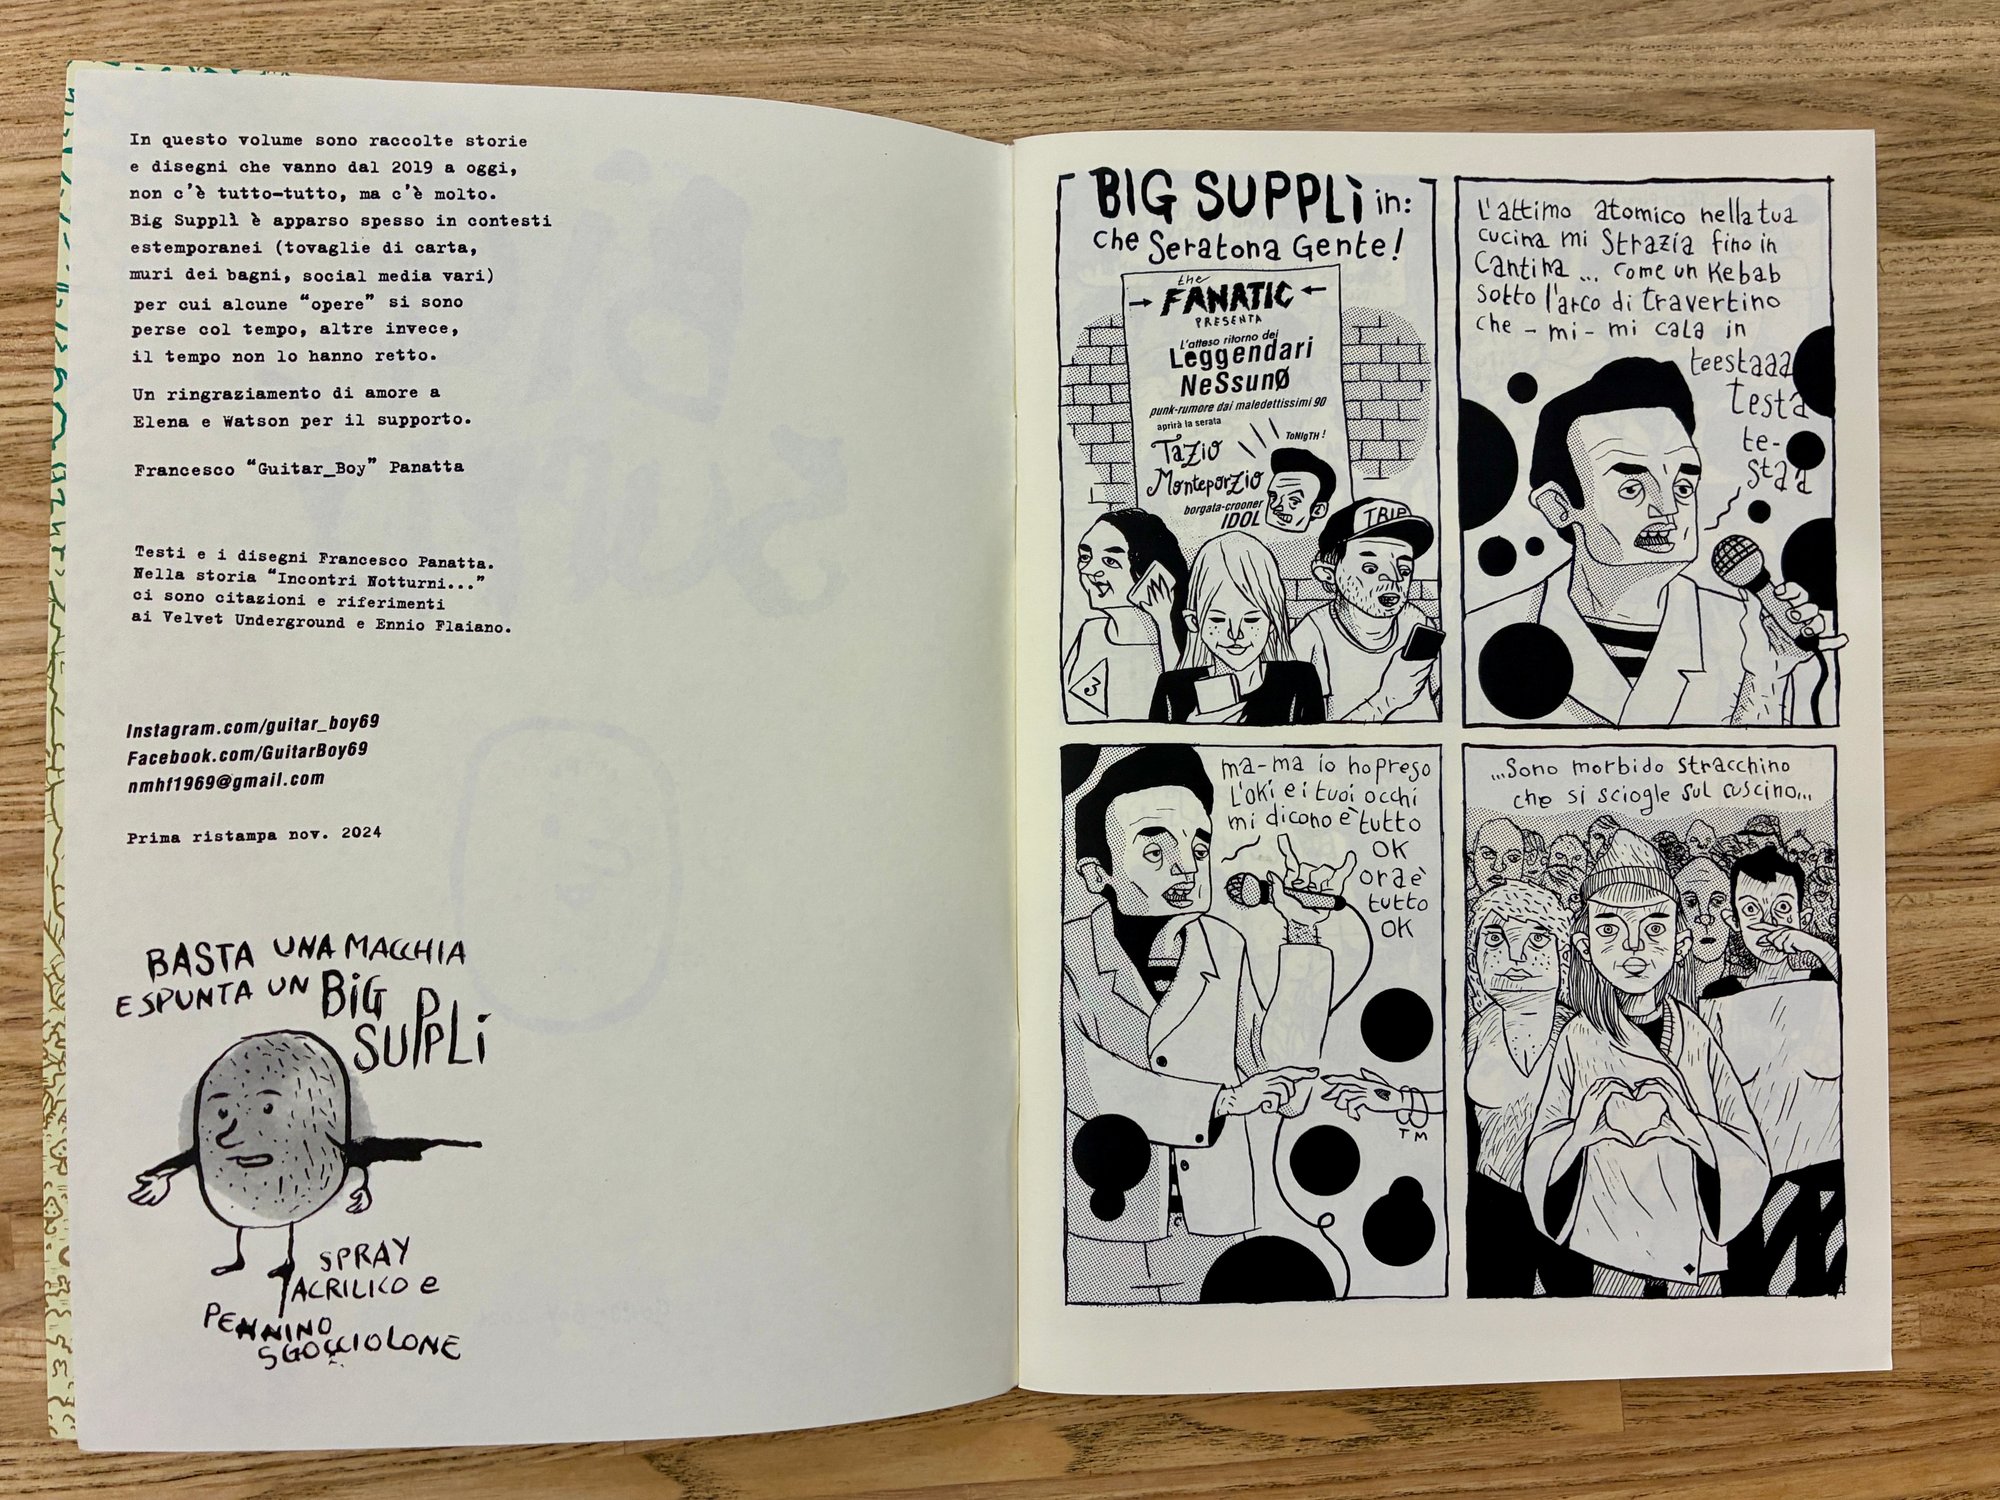 In questo volume sono raccolte storie
e disegni che vanno dal 2019 a oggi,
non c'è tutto-tutto, ma c'è molto.
Big Supplì è apparso spesso in contesti
estemporanei (tovaglie di carta,
muri dei bagni, social media vari)
per cui alcune "opere" si sono
perse col tempo, altre invece,
il tempo non lo hanno retto.
Un ringraziamento di amore a
Elena e Watson per il supporto.
Francesco "Guitar_Boy" Panatta
Testi e i disegni Francesco Panatta.
Nella storia "Incontri Notturni..."
ci sono citazioni e riferimenti
ai Velvet Underground e Ennio Flaiano.
Instagram.com/guitar_boy69
Facebook.com/GuitarBoy69
nmhf1969@gmail.com
Prima ristampa nov. 2024
BASTA UNA MACCHIA
E SPUNTA UN BiG
SUPPLi
SPRAY
ACRILICO e
PENNINO
SGOCCIOLONE
BIG SUPPLì in:
che Seratona Gente!
the
→ FANATIC ←
PRESENTA
L'atteso ritorno dei
Leggendari
NeSsunØ
punk-rumore dai maledettissimi 90
aprirà la serata
ToNIgTH!
Tazio
Monteporzio
borgata-crooner
IDOL
TRIP
3
L'attimo atomico nella tua
cucina mi Strazia fino in
Cantina... come un Kebab
sotto l'arco di travertino
che - mi - mi cala in
teestaaa
testa
te-
staa
ma-ma io ho preso
L'oki e i tuoi occhi
mi dicono è tutto
OK
ora è
tutto
OK
TM
...Sono morbido stracchino
che si scioglie sul cuscino...